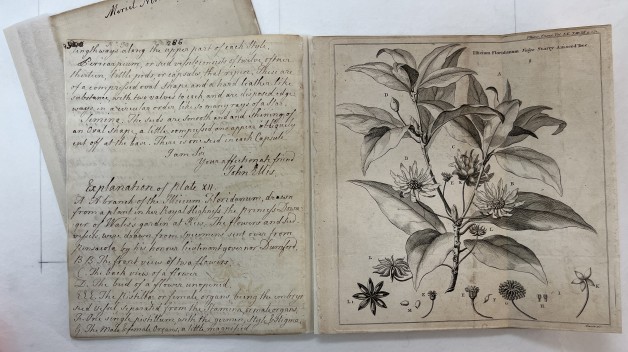 286
lengthways along the upper part of each Style.
Pericarpium, or seed vessel consists of twelve, often
thirteen, little pods or capsules that
of a compressed oval Shape, and a hard leather like
substance, with two valves to each and are disposed edge
ways in a circular order, like so many rays of a Star
Semina. The seeds are smooth and and Shining of
an Oval Shape, a little compressed one upper obliquely
cut off at the base. There is one seed in each Capsule
I am Sir
Your affectionate friend
John Ellis.
Explanation of Plate XII
A. A branch of the Illicium Floridanum, drawn
from a plant in her Royal Highness the Princess Dowa-
ger of Wales's garden at Kew. The flowers and seed
vessels were drawn from specimens sent over from
Pensacola by his honour lieutenant governor Durnford.
B.B. The front view of two flowers.
C. The back view of a flower.
D. The bud of a flower unopened.
E.E.E. The Pistilla or female organs, being the embryo
seed vessel separated from the Stamina female organs.
F. One single pistillum, with the germen, style & Stigma,
G. The Male & female Organs, a little magnified
Illicium Floridanum. Starry Anniseed Tree.
A
D
C
B
B
L
L
L
M
E
E
F
G
H
I
K